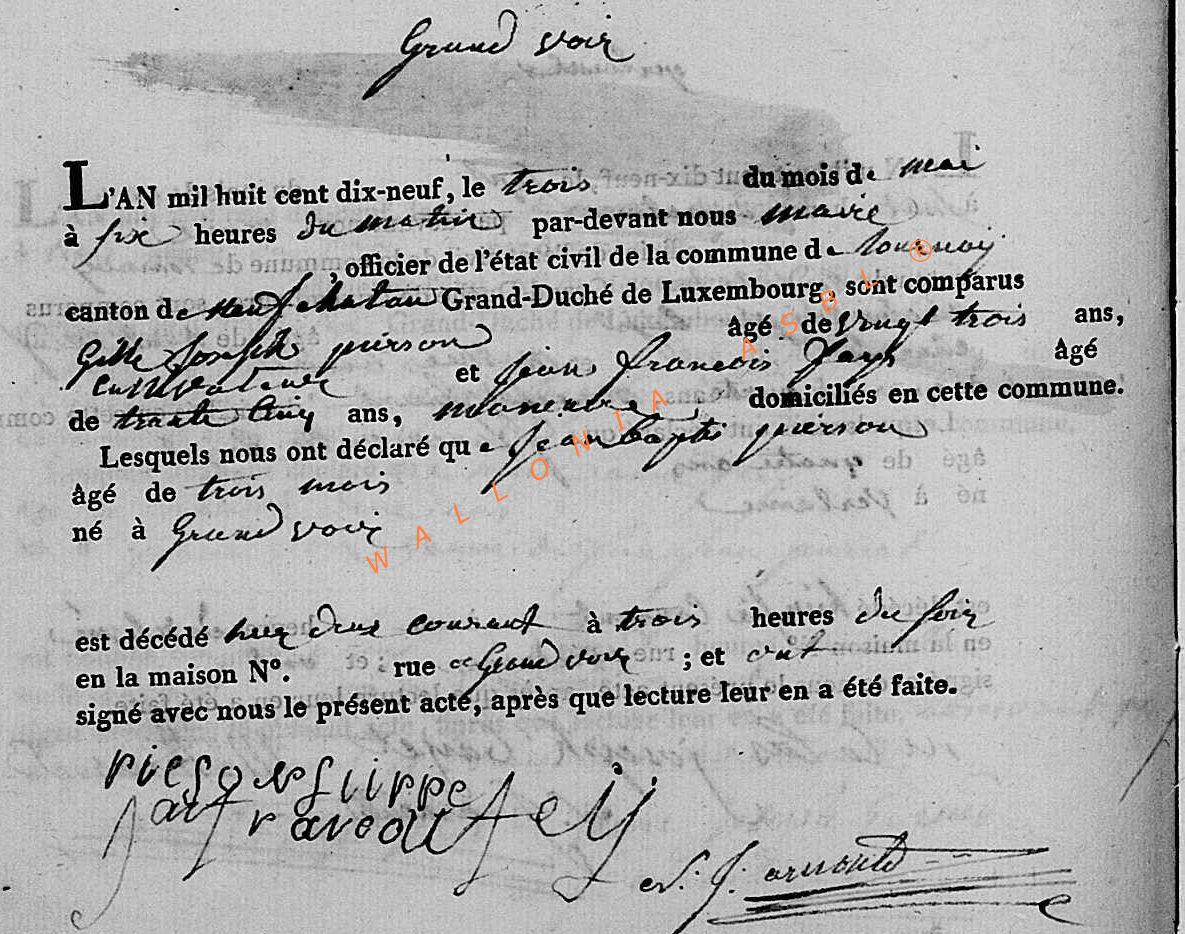 Grand voir
L'AN mil huit cent dix-neuf, le trois du mois de mai
à six heures du matin par-devant nous maire
, officier de l'état civil de la commune de tournay
canton de neufchatau Grand-Duché de Luxembourg, sont comparus
Gille Joseph pierson âgé de vingt trois ans,
cultivateur et jean francois âgé
de trante cinq ans, maneuvre domiciliés en cette commune.
Lesquels nous ont déclaré que jean baptis pierson
âgé de trois mois
né à Grand voir
est décédé hier deux courant à trois heures du soir
en la maison N°. rue de Grand voir ; et ont
signé avec nous le présent acte, après que lecture leur en a été faite.
arnould
WALLONIA ASBL ©